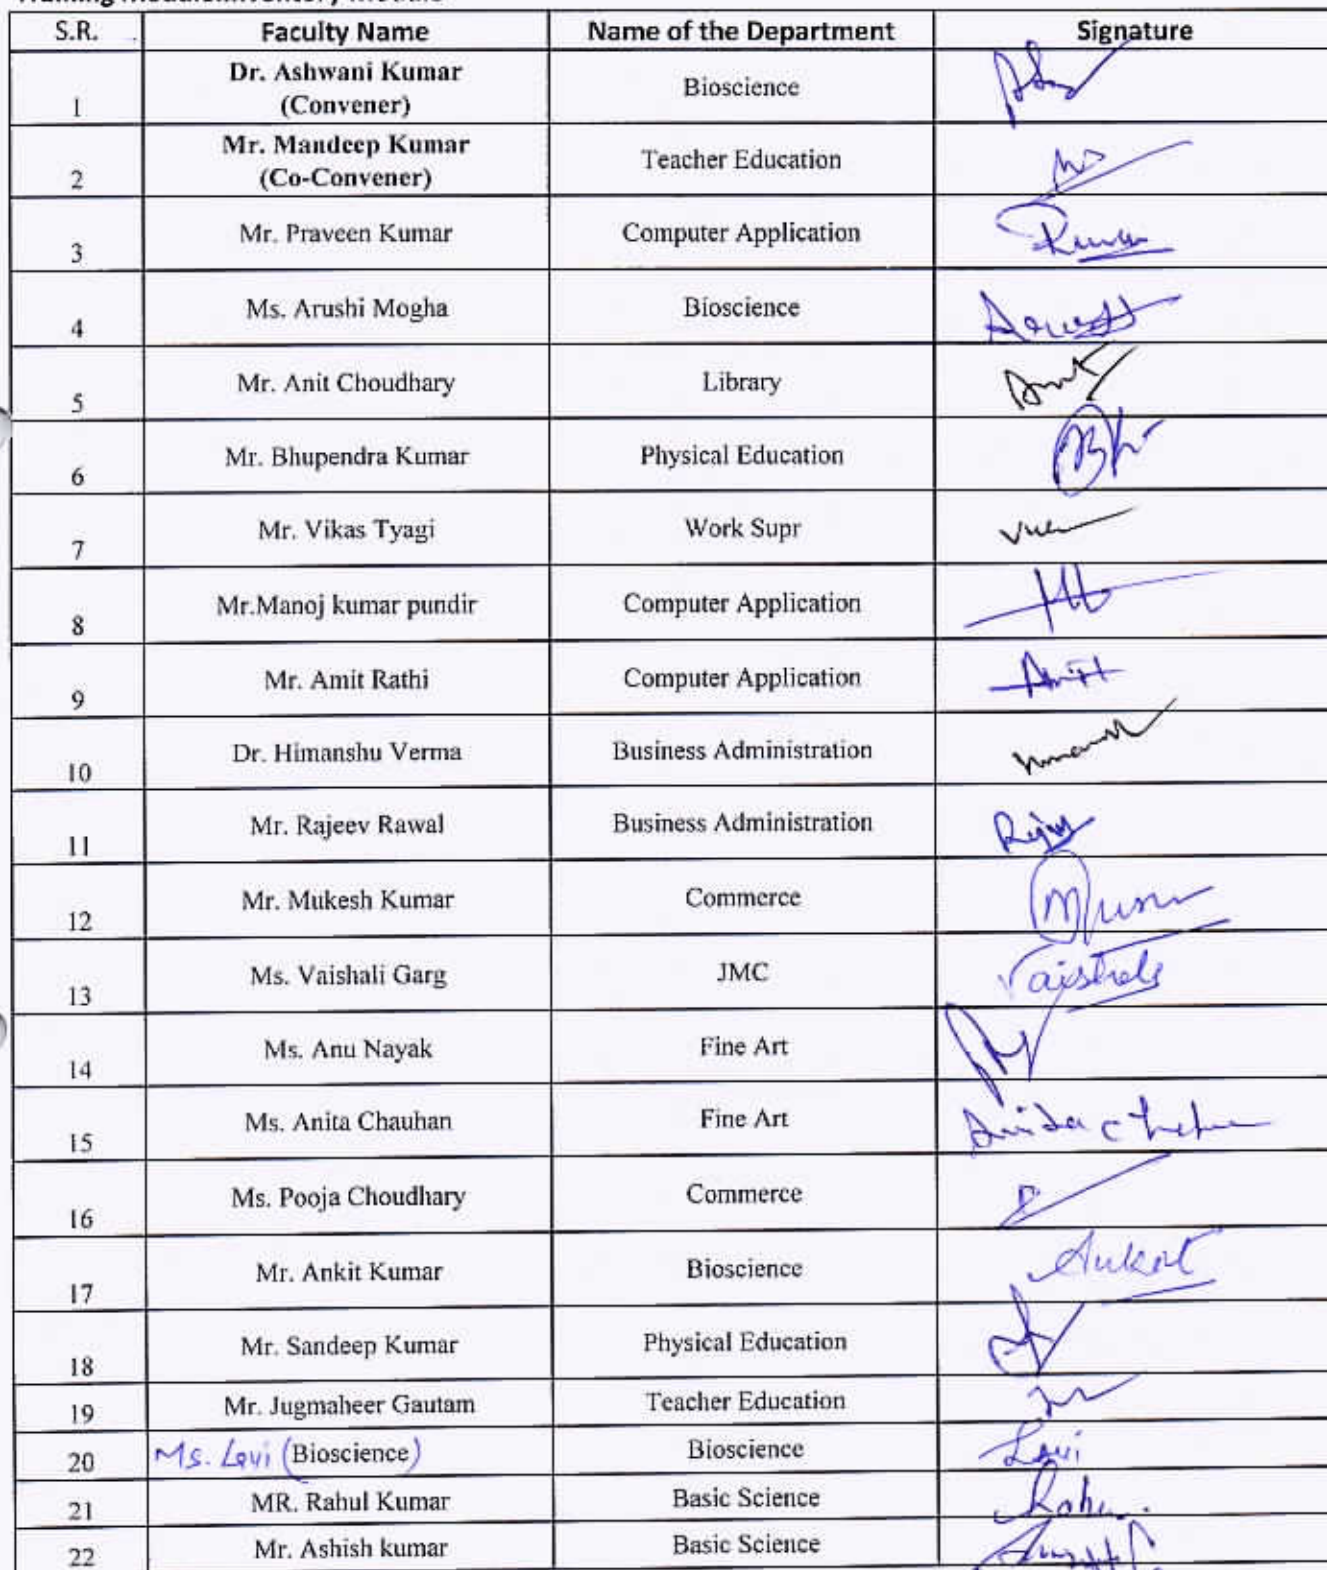 S.R. Faculty Name Name of the Department Signature
1 Dr. Ashwani Kumar (Convener) Bioscience
2 Mr. Mandeep Kumar (Co-Convener) Teacher Education
3 Mr. Praveen Kumar Computer Application
4 Ms. Arushi Mogha Bioscience
5 Mr. Anit Choudhary Library
6 Mr. Bhupendra Kumar Physical Education
7 Mr. Vikas Tyagi Work Supr
8 Mr.Manoj kumar pundir Computer Application
9 Mr. Amit Rathi Computer Application
10 Dr. Himanshu Verma Business Administration
11 Mr. Rajeev Rawal Business Administration
12 Mr. Mukesh Kumar Commerce
13 Ms. Vaishali Garg JMC
14 Ms. Anu Nayak Fine Art
15 Ms. Anita Chauhan Fine Art
16 Ms. Pooja Choudhary Commerce
17 Mr. Ankit Kumar Bioscience
18 Mr. Sandeep Kumar Physical Education
19 Mr. Jugmaheer Gautam Teacher Education
20 Ms. Lovi (Bioscience) Bioscience Lovi
21 MR. Rahul Kumar Basic Science
22 Mr. Ashish kumar Basic Science